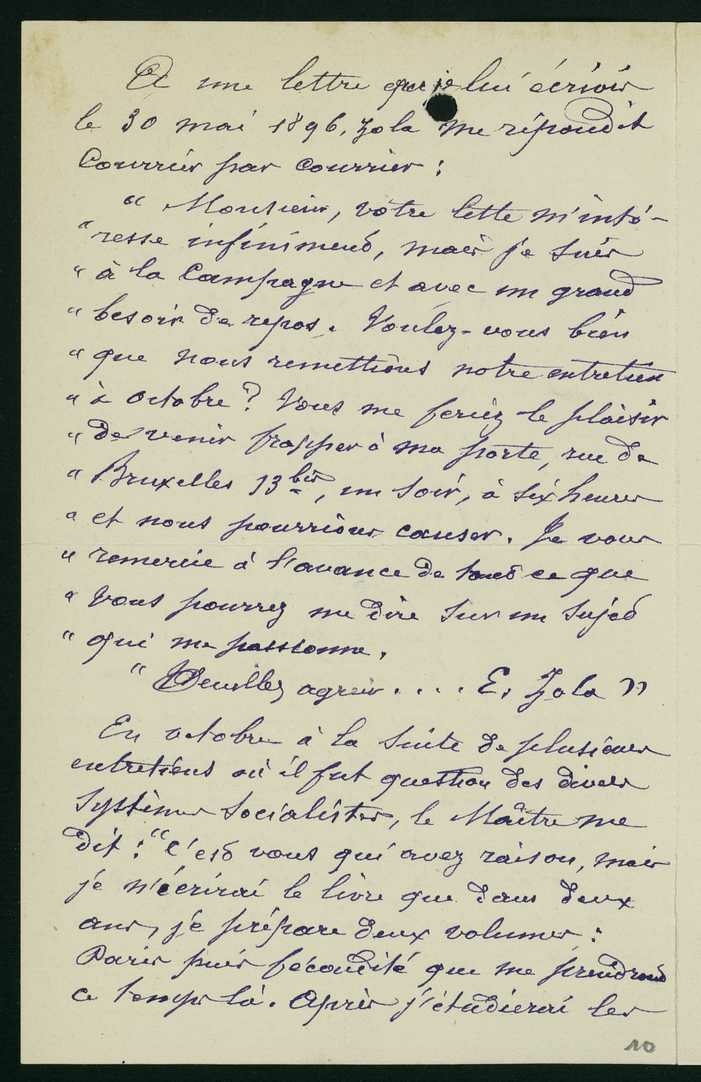 A une lettre que je lui écrivis
le 30 mai 1896, Zola me répondit
Courrier par courrier :
" Monsieur, votre lette m'inté-
" resse infiniment, mais je suis
" à la Campagne et avec un grand
" besoin de repos. Voulez-vous bien
" que nous remettions notre entretien
" à octobre ? Vous me feriez le plaisir
" de venir frapper à ma porte, rue de
" Bruxelles 13 bis, un soir, à six heures
" et nous pourrions causer. Je vous
" remercie à l'avance de tout ce que
" vous pourrez me dire sur un sujet
" qui me passionne.
" Veuillez agréer . . . . E. Zola "
En octobre à la suite de plusieurs
entretiens où il fut question des divers
Systèmes Socialistes, le Maître me
dit : " C'est vous qui avez raison, mais
je n'écrirai le livre que dans deux
ans, je prépare deux volumes :
Paris puis fécondité que me prendront
ce temps là. Après j'étudierai les
10